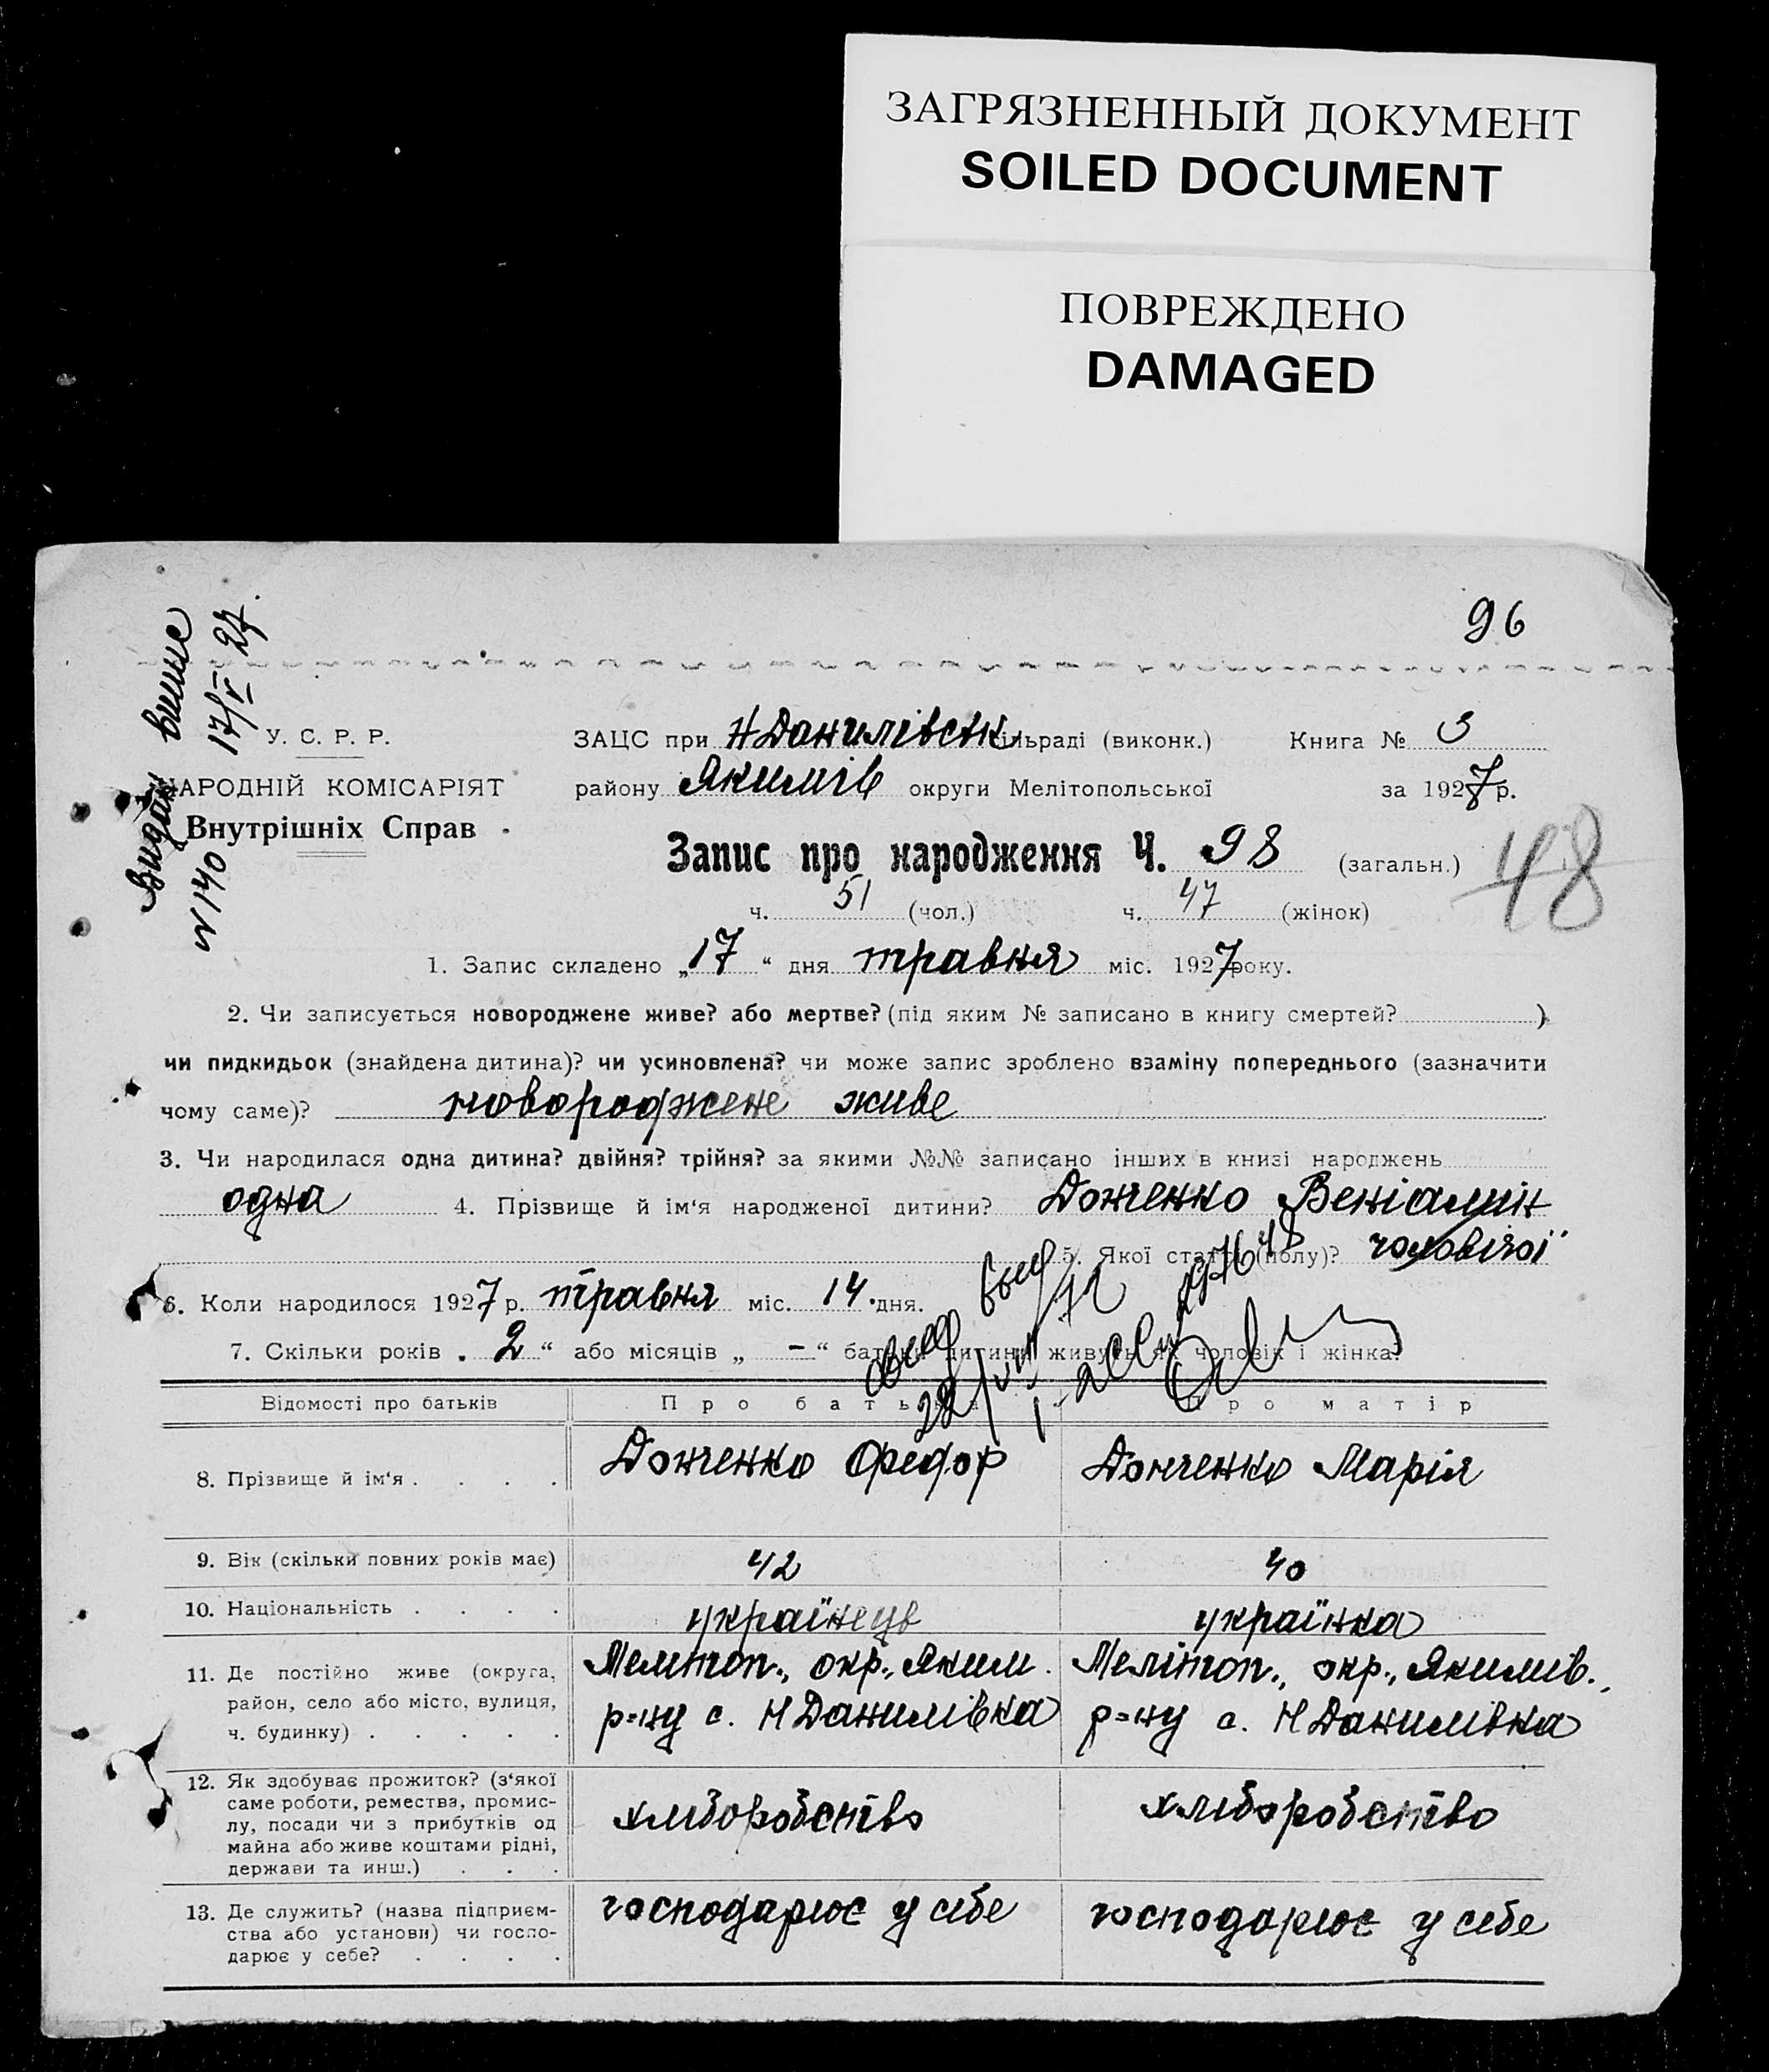 ЗАГРЯЗНЕННЫЙ ДОКУМЕНТ
SOILED DOCUMENT
ПОВРЕЖДЕНО
DAMAGED
96
Видан випис
17/V 27.
N 1140
У. С. Р. Р.
НАРОДНІЙ КОМІСАРІЯТ
Внутрішніх Справ
ЗАЦС при Н Данилівськ сільраді (виконк.) Книга № 3
району Якимів округи Мелітопольської за 1927 р.
Запис про народження Ч. 98 (загальн.)
48
ч. 51 (чол.) ч. 47 (жінок)
1. Запис складено „17“ дня травня міс. 1927 року.
2. Чи записується новороджене живе? або мертве? (під яким № записано в книгу смертей? )
чи пидкидьок (знайдена дитина)? чи усиновлена? чи може запис зроблено взаміну попереднього (зазначити
чому саме)? новороджене живе
3. Чи народилася одна дитина? двійня? трійня? за якими №№ записано інших в книзі народжень
одна 4. Прізвище й ім‘я народженої дитини? Донченко Веніамин
5. Якої статі (полу)? чоловічої
6. Коли народилося 1927 р. травня міс. 14 дня.
7. Скільки років „2“ або місяців „–“ батьки дитини живуть як чоловік і жінка?
Відомості про батьків Про батька Про матір
8. Прізвище й ім‘я . . . . Донченко Федор Донченко Марія
9. Вік (скільки повних років має) 42 40
10. Національність . . . . українець українка
11. Де постійно живе (округа, Мелитоп., окр., Яким. Мелітоп., окр., Якимив.,
район, село або місто, вулиця, р=ну с. Н Данилівка р=ну с. Н Данилівка
ч. будинку) . . . . .
12. Як здобуває прожиток? (з‘якої
саме роботи, ремества, промис-
лу, посади чи з прибутків од хліборобство хліборобство
майна або живе коштами рідні,
держави та инш.) . . .
13. Де служить? (назва підприєм- господарює у себе господарює у себе
ства або установи) чи госпо-
дарює у себе? . . . .